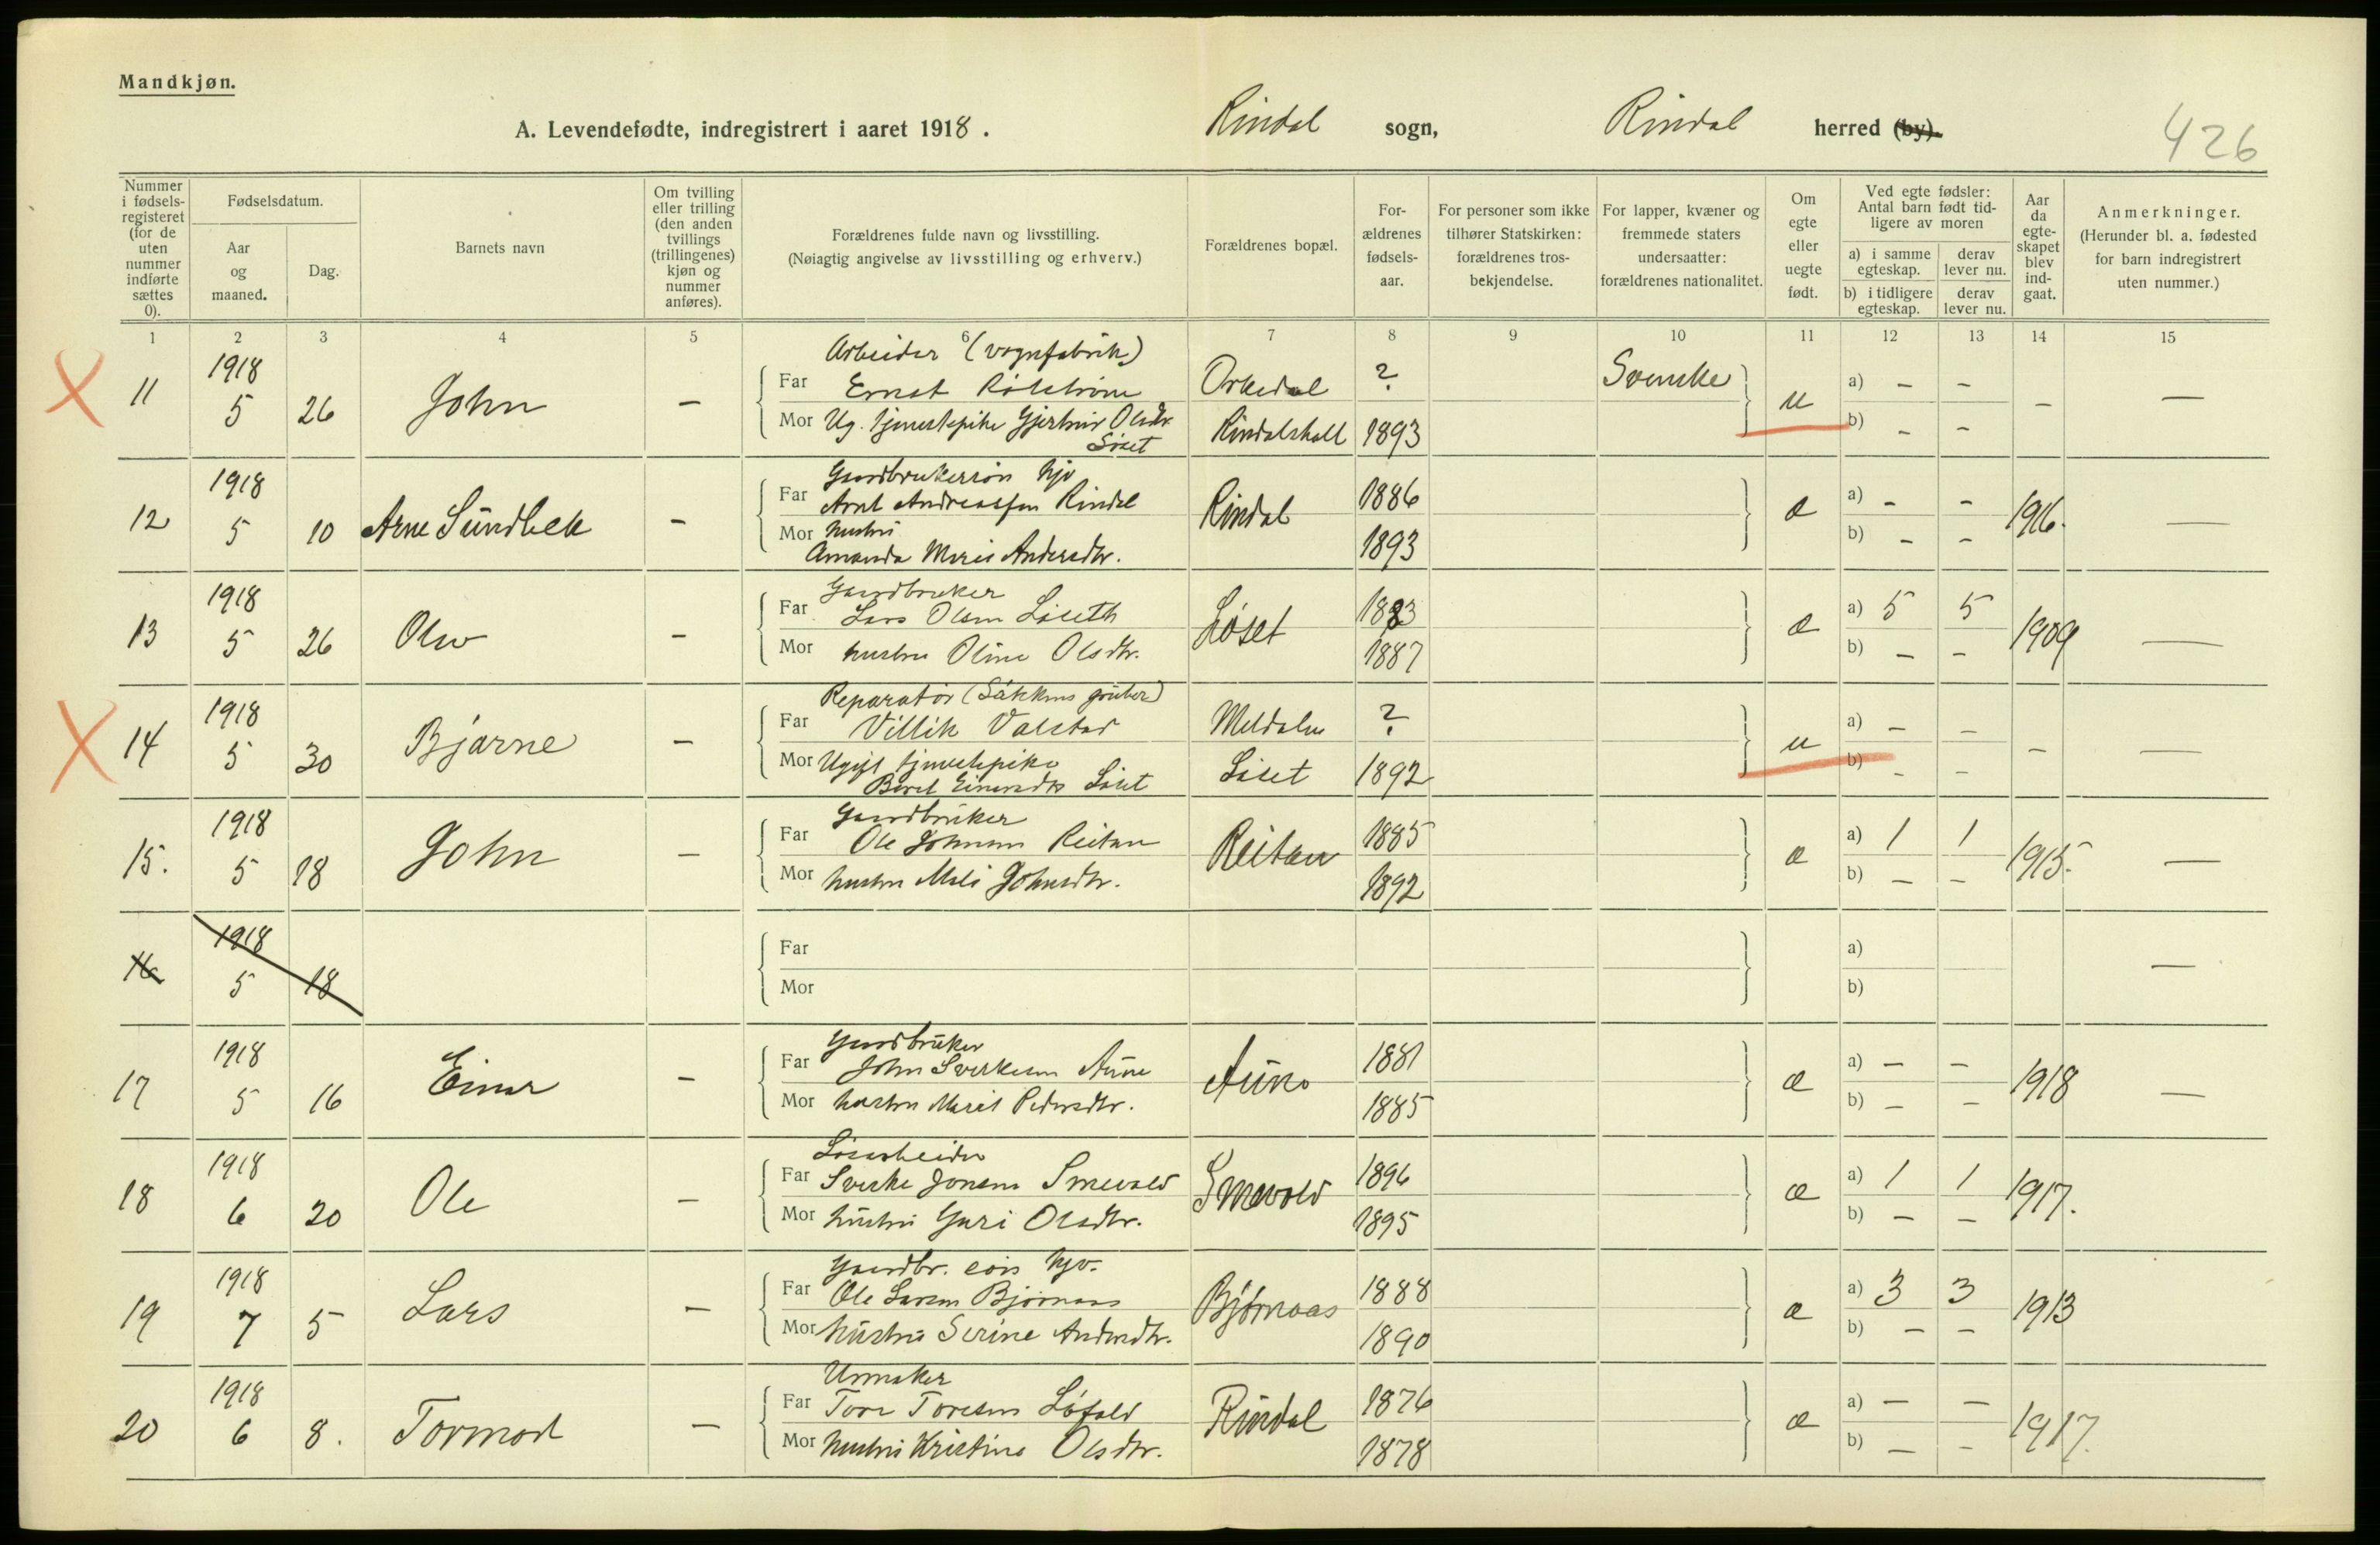 Mandkjøn.
A. Levendefødte, indregistrert i aaret 1918. Rindal sogn, Rindal herred (by).
426
Nummer i fødselsregisteret (for de uten nummer indførte sættes 0).
Fødselsdatum.
Aar og maaned.
Dag.
Barnets navn
Om tvilling eller trilling (den anden tvillings (trillingenes) kjøn og nummer anføres).
Forældrenes fulde navn og livsstilling.
(Nøiagtig angivelse av livsstilling og erhverv.)
Forældrenes bopæl.
Forældrenes fødselsaar.
For personer som ikke tilhører Statskirken: forældrenes trosbekjendelse.
For lapper, kvæner og fremmede staters undersaatter: forældrenes nationalitet.
Om egte eller uegte født.
Ved egte fødsler: Antal barn født tidligere av moren
a) i samme egteskap. derav lever nu.
b) i tidligere egteskap. derav lever nu.
Aar da egteskapet blev indgaat.
Anmerkninger.
(Herunder bl. a. fødested for barn indregistrert uten nummer.)
1 2 3 4 5 6 7 8 9 10 11 12 13 14 15
Arbeider (vognfabrik)
11 1918 5 26 John — Far Ernst Orkedal ? Svenske u a) — — — —
Mor Ug. tjenestepike Olsdtr. Løset Rindalskall 1893 b) — —
Gaardbrukersøn hjv
12 1918 5 10 Arne Sundbek — Far Arnt Andreassen Rindal Rindal 1886 æ a) — — 1916. —
Mor hustru Amanda Marie Andersdtr. 1893 b) — —
Gaardbruker
13 1918 5 26 Olav — Far Lars Olsen Løseth Løset 1883 æ a) 5 5 1909 —
Mor hustru Oline Olsdtr. 1887 b) — —
Reparatør (Løkkens gruber)
14 1918 5 30 Bjarne — Far Villik Valstad Meldalen ? u a) — — — —
Mor Ugift tjenestepike Beret Einarsdtr Løset Løset 1892 b) — —
Gaardbruker
15. 1918 5 18 John — Far Ole Johnsen Reitan Reitan 1885 æ a) 1 1 1915. —
Mor hustru Mali Johnsdtr. 1892 b) — —
16 1918 5 18 Far a) —
Mor b)
Gaardbruker
17 1918 5 16 Einar — Far John Sverkesen Aune Aune 1881 æ a) — — 1918 —
Mor hustru Marit Pedersdtr. 1885 b) — —
Løsarbeider
18 1918 6 20 Ole — Far Sverke Jonsen Smevold Smevold 1896 æ a) 1 1 1917.
Mor hustru Guri Olsdtr. 1895 b) — —
Gaardbr. søn hjv.
19 1918 7 5 Lars — Far Ole Larsen Bjørnaas Bjørnaas 1888 æ a) 3 3 1913
Mor hustru Serine Andersdtr. 1890 b) — —
Urmaker
20 1918 6 8. Tormod — Far Tore Toresen Løfald Rindal 1876 æ a) — — 1917.
Mor hustru Kristine Olsdtr. 1878 b) — —